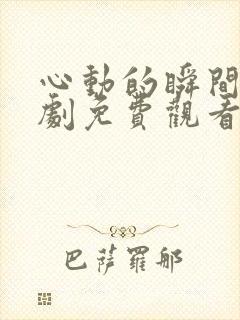 心動的瞬間
劇免費觀看
巴薩羅那